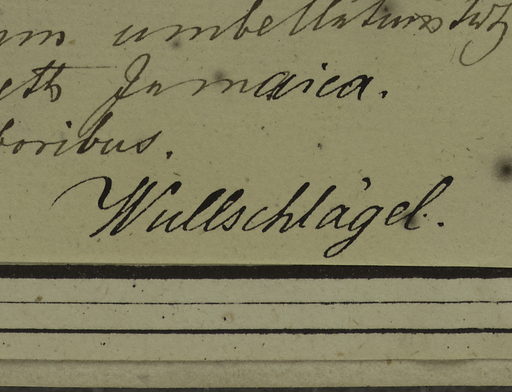 um umbellatum Sw
eth Jamaica.
boribus.
Wullschlägel.